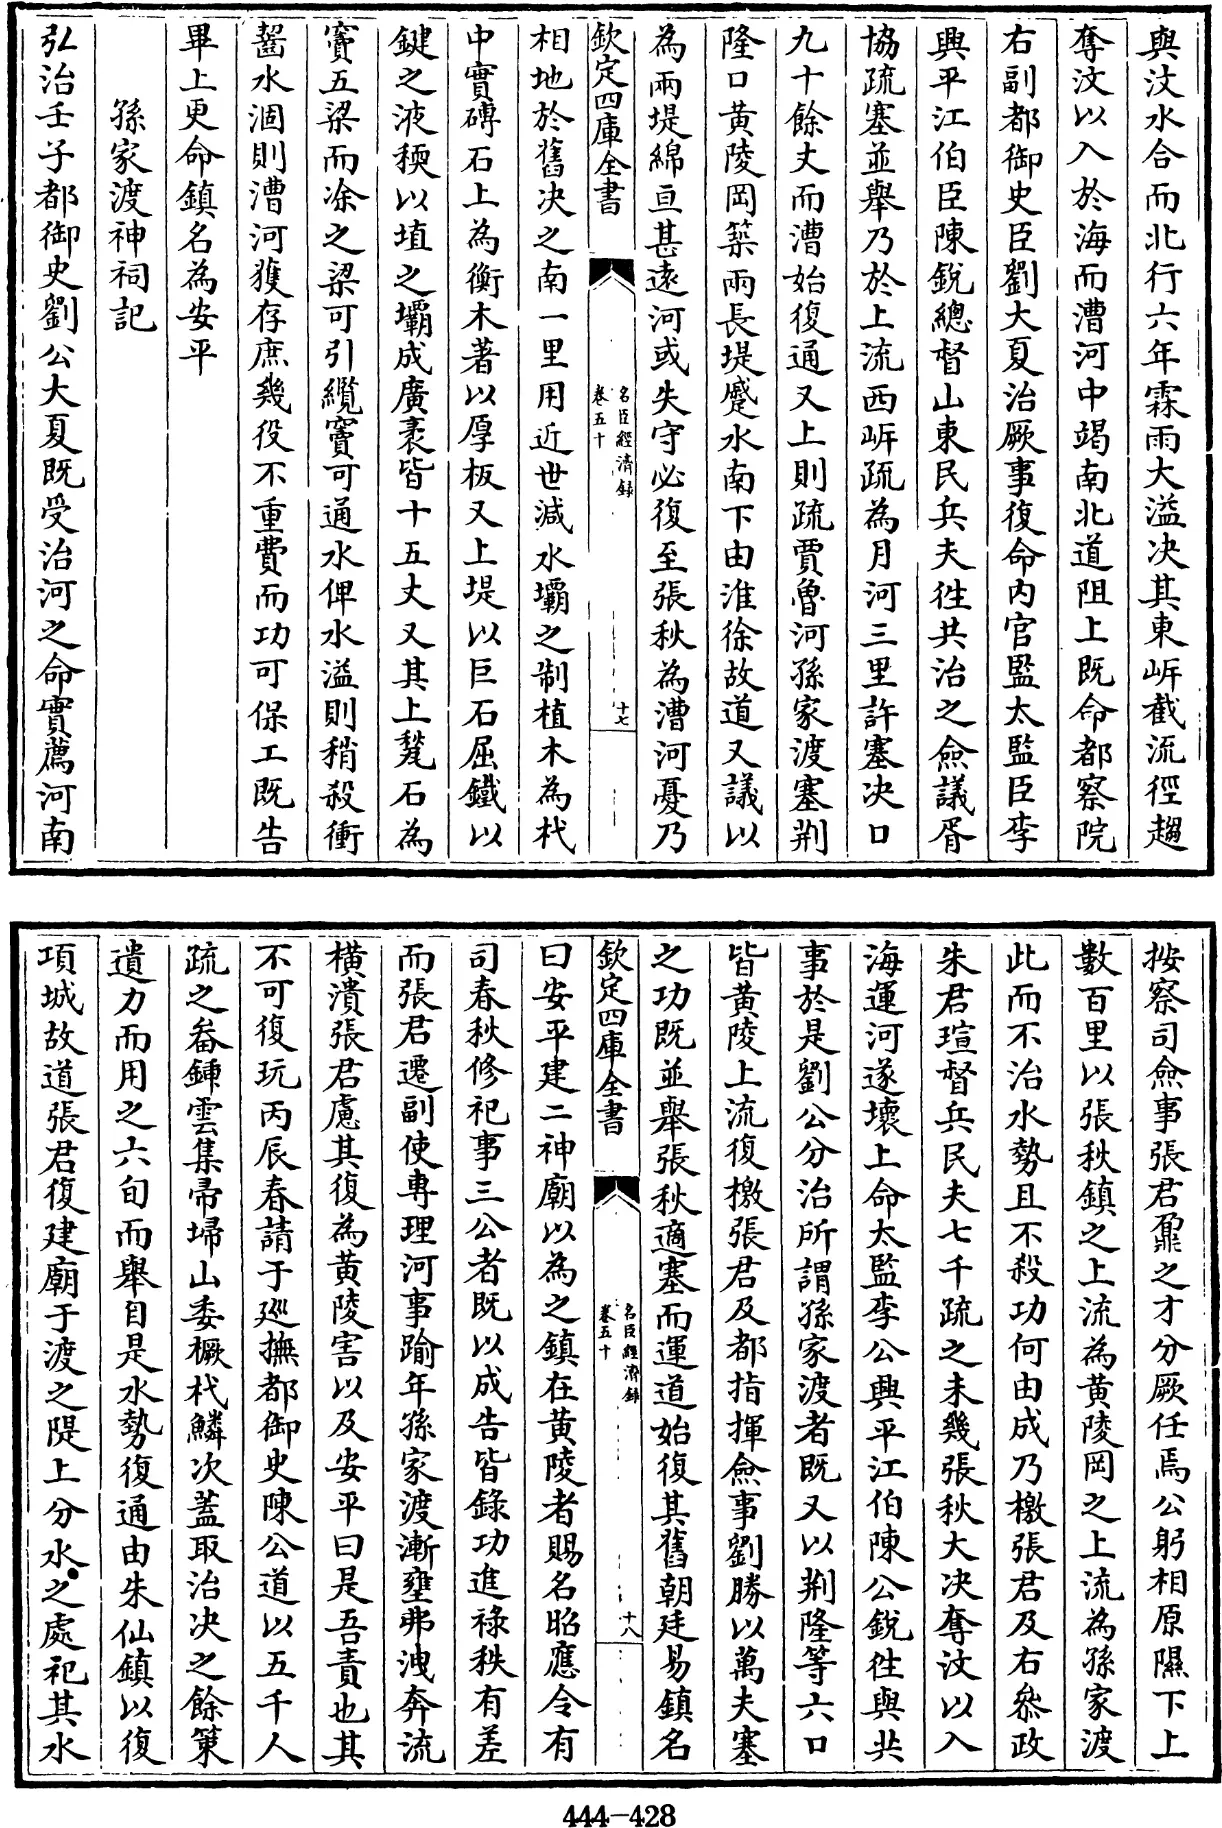 與汶水合而北行六年霖雨大溢决其東岍截流徑趨
奪汶以入於海而漕河中竭南北道阻上既命都察院
右副都御史臣劉大夏治厥事復命内官監太監臣李
興平江伯臣陳銳總督山東民兵夫徃共治之僉議胥
協疏塞並舉乃於上流西岍疏為月河三里許塞决口
九十餘丈而漕始復通又上則疏賈魯河孫家渡塞荆
隆口黄陵岡築兩長堤蹙水南下由淮徐故道又議以
為兩堤綿亘甚逺河或失守必復至張秋為漕河憂乃
欽定四庫全書
名臣經濟録
卷五十
十七
相地於舊决之南一里用近世減水壩之制植木為杙
中實磚石上為衡木著以厚板又上堤以巨石屈鐵以
鍵之液稬以埴之壩成廣袤皆十五丈又其上甃石為
竇五梁而凃之梁可引纜竇可通水俾水溢則稍殺衝
齧水涸則漕河獲存庶幾役不重費而功可保工既告
畢上更命鎮名為安平
孫家渡神祠記
弘治壬子都御史劉公大夏既受治河之命實薦河南
按察司僉事張君鼐之才分厥任焉公躬相原隰下上
數百里以張秋鎮之上流為黄陵岡之上流為孫家渡
此而不治水勢且不殺功何由成乃檄張君及右叅政
朱君瑄督兵民夫七千疏之未幾張秋大决奪汶以入
海運河遂壞上命太監李公興平江伯陳公銳徃與共
事於是劉公分治所謂孫家渡者既又以荆隆等六口
皆黄陵上流復檄張君及都指揮僉事劉勝以萬夫塞
之功既並舉張秋適塞而運道始復其舊朝廷易鎮名
欽定四庫全書
名臣經濟録
卷五十
十八
曰安平建二神廟以為之鎮在黄陵者賜名昭應令有
司春秋修祀事三公者既以成告皆錄功進祿秩有差
而張君遷副使専理河事踰年孫家渡漸壅弗洩奔流
横潰張君慮其復為黄陵害以及安平曰是吾責也其
不可復玩丙辰春請于廵撫都御史陳公道以五千人
疏之畚鍤雲集帚埽山委橛杙鱗次蓋取治决之餘䇿
遺力而用之六旬而舉自是水勢復通由朱仙鎮以復
項城故道張君復建廟于渡之隄上分水之處祀其水
444-428